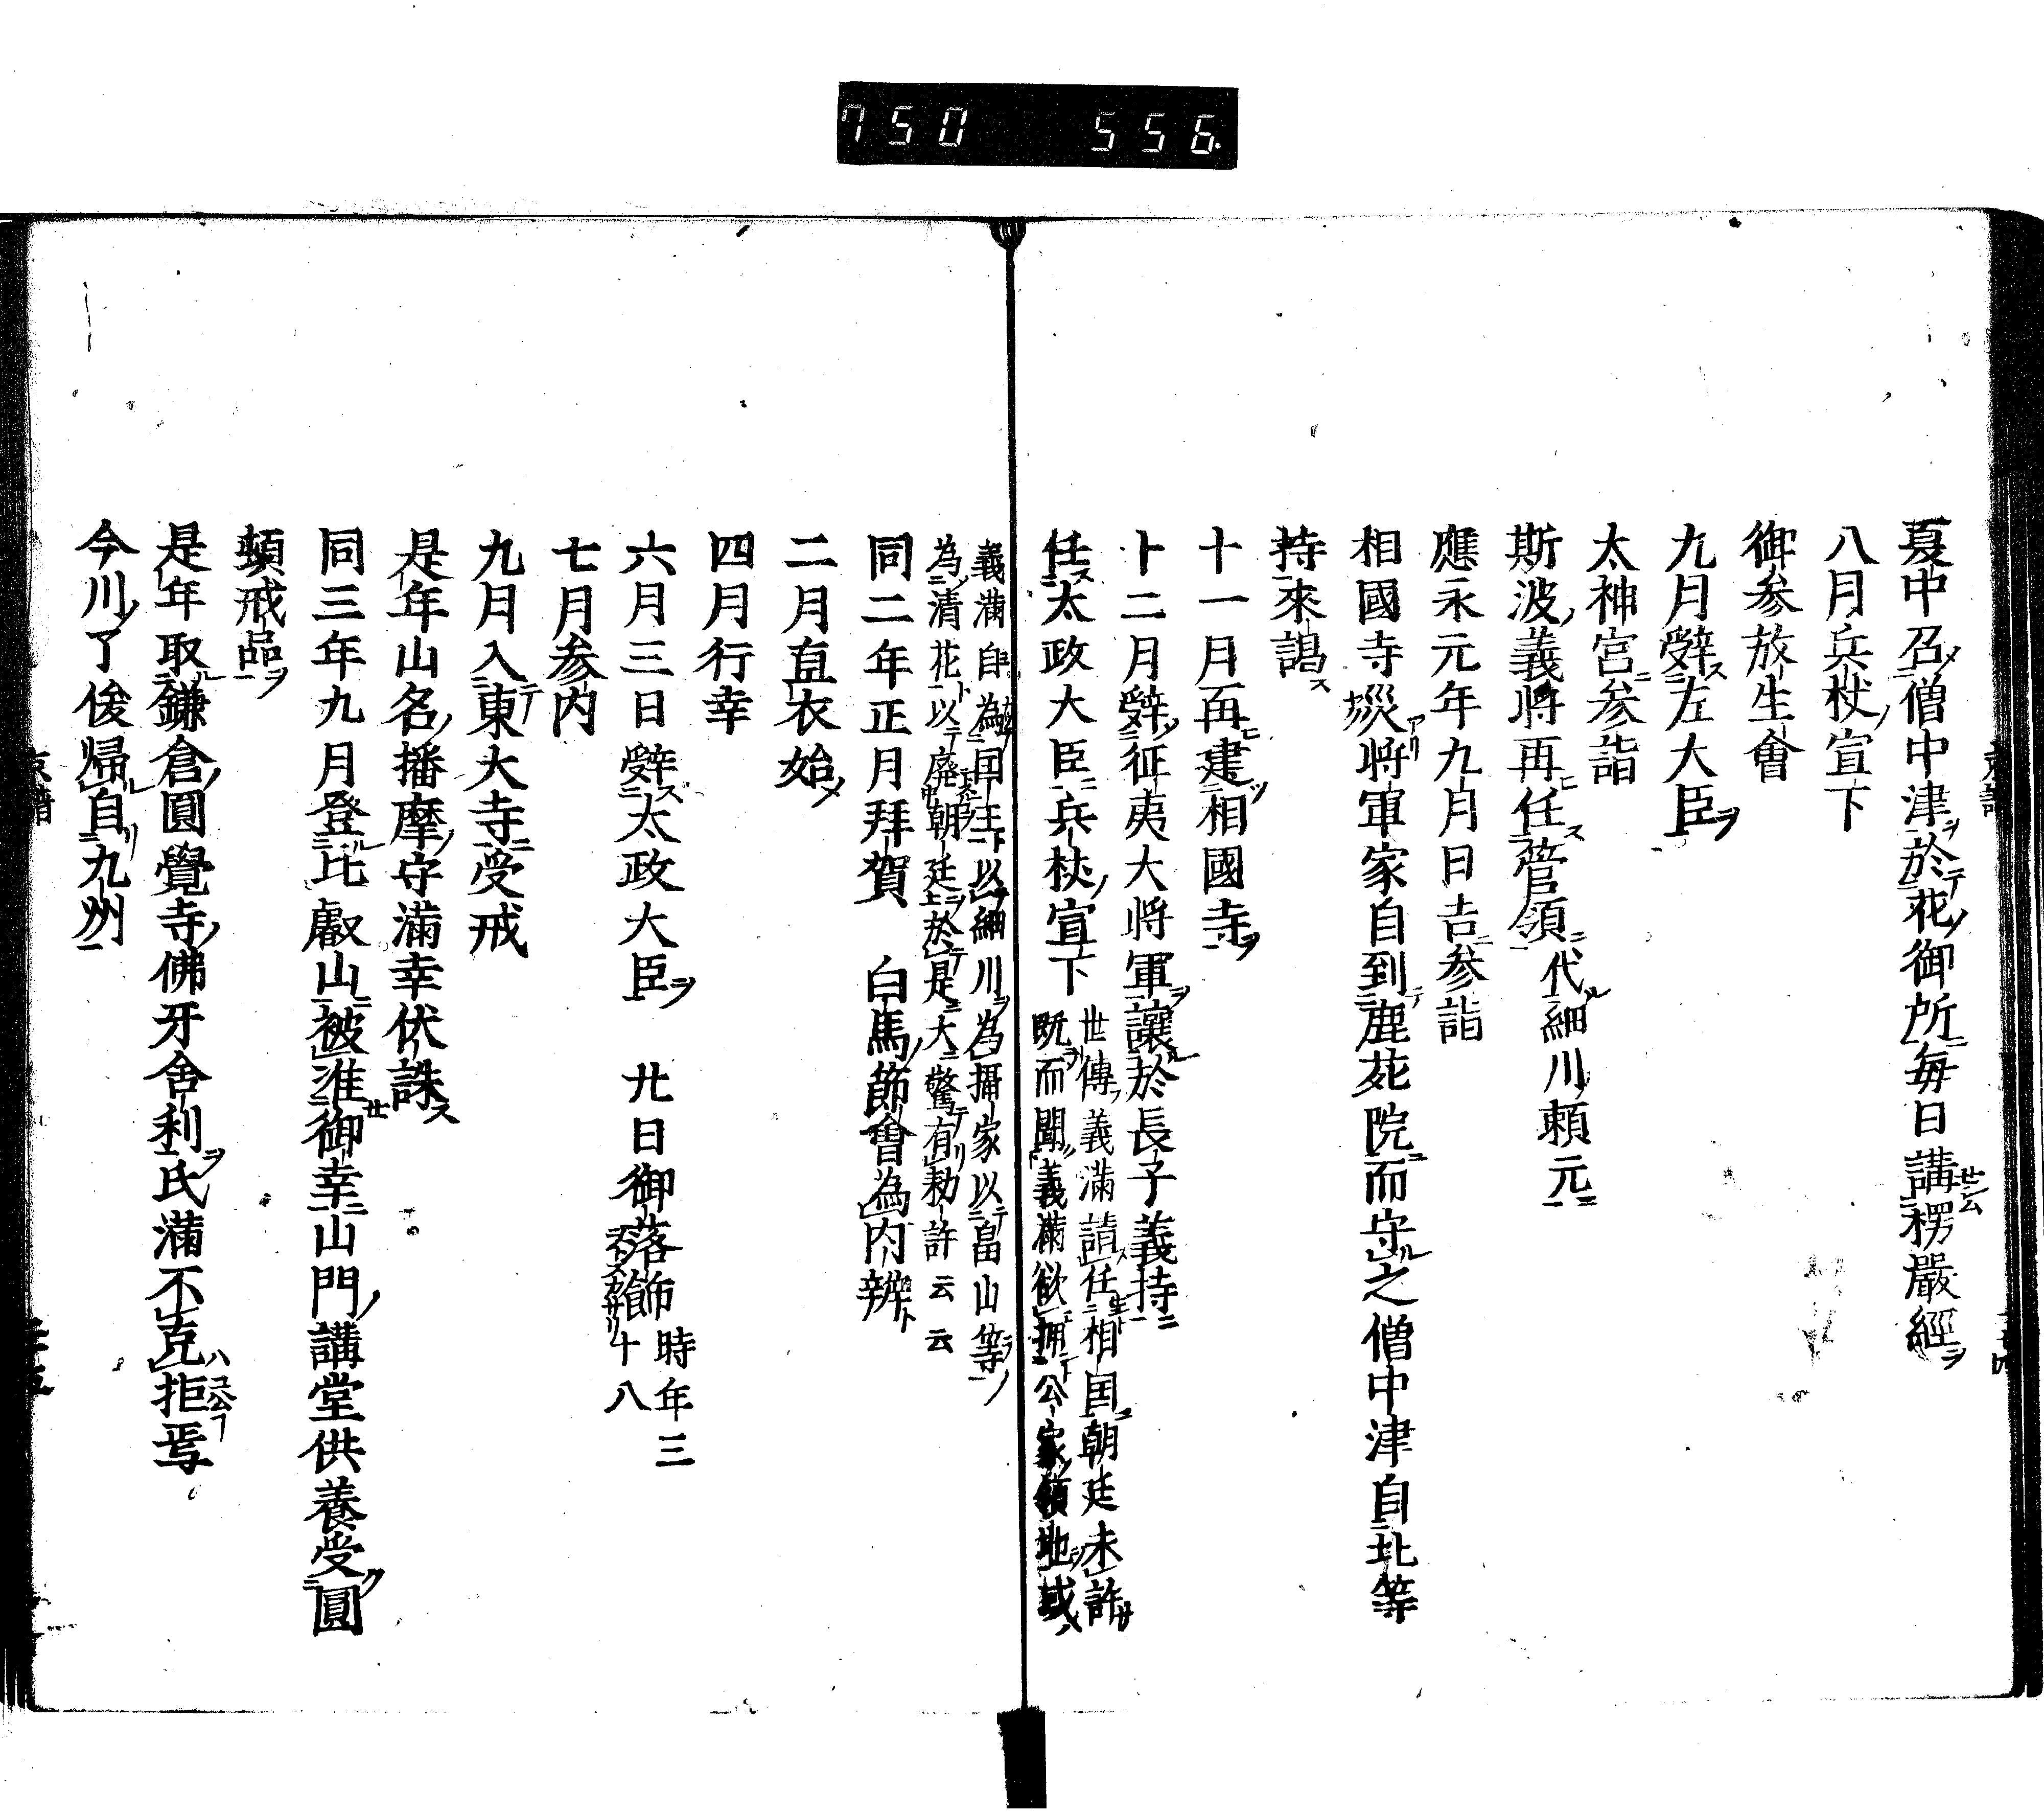 750 556
夏中召僧中津於花御所毎日講楞嚴經
八月兵杖宣下
御参放生會
九月辭左大臣
太神宮参詣
斯波義將再任管領代細川頼元
應永元年九月日吉参詣
相國寺災將軍家自到鹿苑院而守之僧中津自北等
持來謁
十一月再建相國寺
十二月辭征夷大將軍讓於長子義持
任太政大臣兵杖宣下
世傳義滿請任相国朝廷未許
既而聞義滿欲押公家領地或
義滿自為国王以細川為攝家以畠山等
為清花以廃朝廷於是大驚有勅許云云
同二年正月拜賀 白馬節會為内辨
二月直衣始
四月行幸
六月三日辭太政大臣 廿日御落餝
時年三
十八
七月参内
九月入東大寺受戒
是年山名播摩守滿幸伏誅
同三年九月登比叡山被准御幸山門講堂供養受圓
頓戒品
是年取鎌倉圓覺寺佛牙舍利氏滿不克拒焉
今川了俊歸自九州